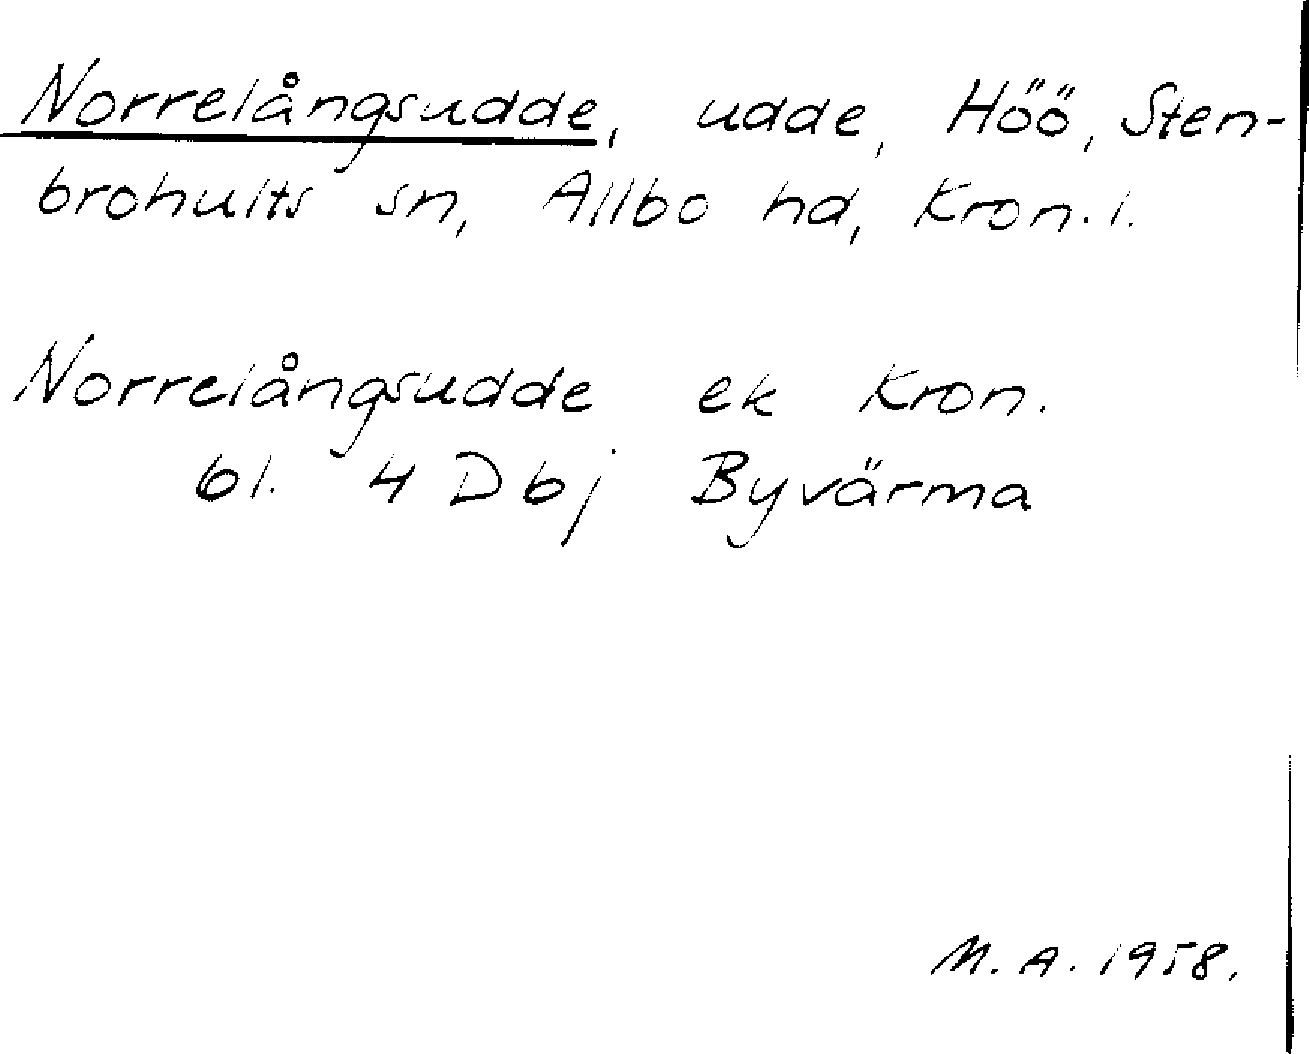 Norrelångsudde, udde, Höö, Sten-
brohults sn, Allbo hd, Kron. l.
Norrelångsudde ek Kron.
bl. 4 D bj Byvärma
M. A. 1958.